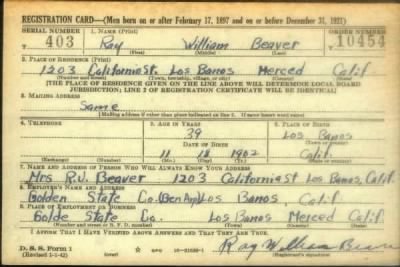 REGISTRATION CARD—(Men born on or after February 17, 1897 and on or before December 31, 1921)
SERIAL NUMBER 1. NAME (Print) ORDER NUMBER
T 403 Ray William Beaver 10454
(First) (Middle) (Last)
2. PLACE OF RESIDENCE (Print)
1203 California St. Los Banos Merced Calif.
(Number and street) (Town, township, village, or city) (County) (State)
[THE PLACE OF RESIDENCE GIVEN ON THE LINE ABOVE WILL DETERMINE LOCAL BOARD
JURISDICTION; LINE 2 OF REGISTRATION CERTIFICATE WILL BE IDENTICAL]
3. MAILING ADDRESS
Same
[Mailing address if other than place indicated on line 2. If same insert word same]
4. TELEPHONE 5. AGE IN YEARS 6. PLACE OF BIRTH
39 Los Banos
DATE OF BIRTH (Town or county)
11 18 1902 Calif.
(Exchange) (Number) (Mo.) (Day) (Yr.) (State or country)
7. NAME AND ADDRESS OF PERSON WHO WILL ALWAYS KNOW YOUR ADDRESS
Mrs R.W. Beaver 1203 California St Los Banos, Calif.
8. EMPLOYER'S NAME AND ADDRESS
Golden State Co. Los Banos, Calif.
9. PLACE OF EMPLOYMENT OR BUSINESS
Golde State Co. Los Banos Merced Calif
(Number and street or R. F. D. number) (Town) (County) (State)
I AFFIRM THAT I HAVE VERIFIED ABOVE ANSWERS AND THAT THEY ARE TRUE.
D. S. S. Form 1
(Revised 1-1-42) GPO 16-21630-1 Ray William Beaver